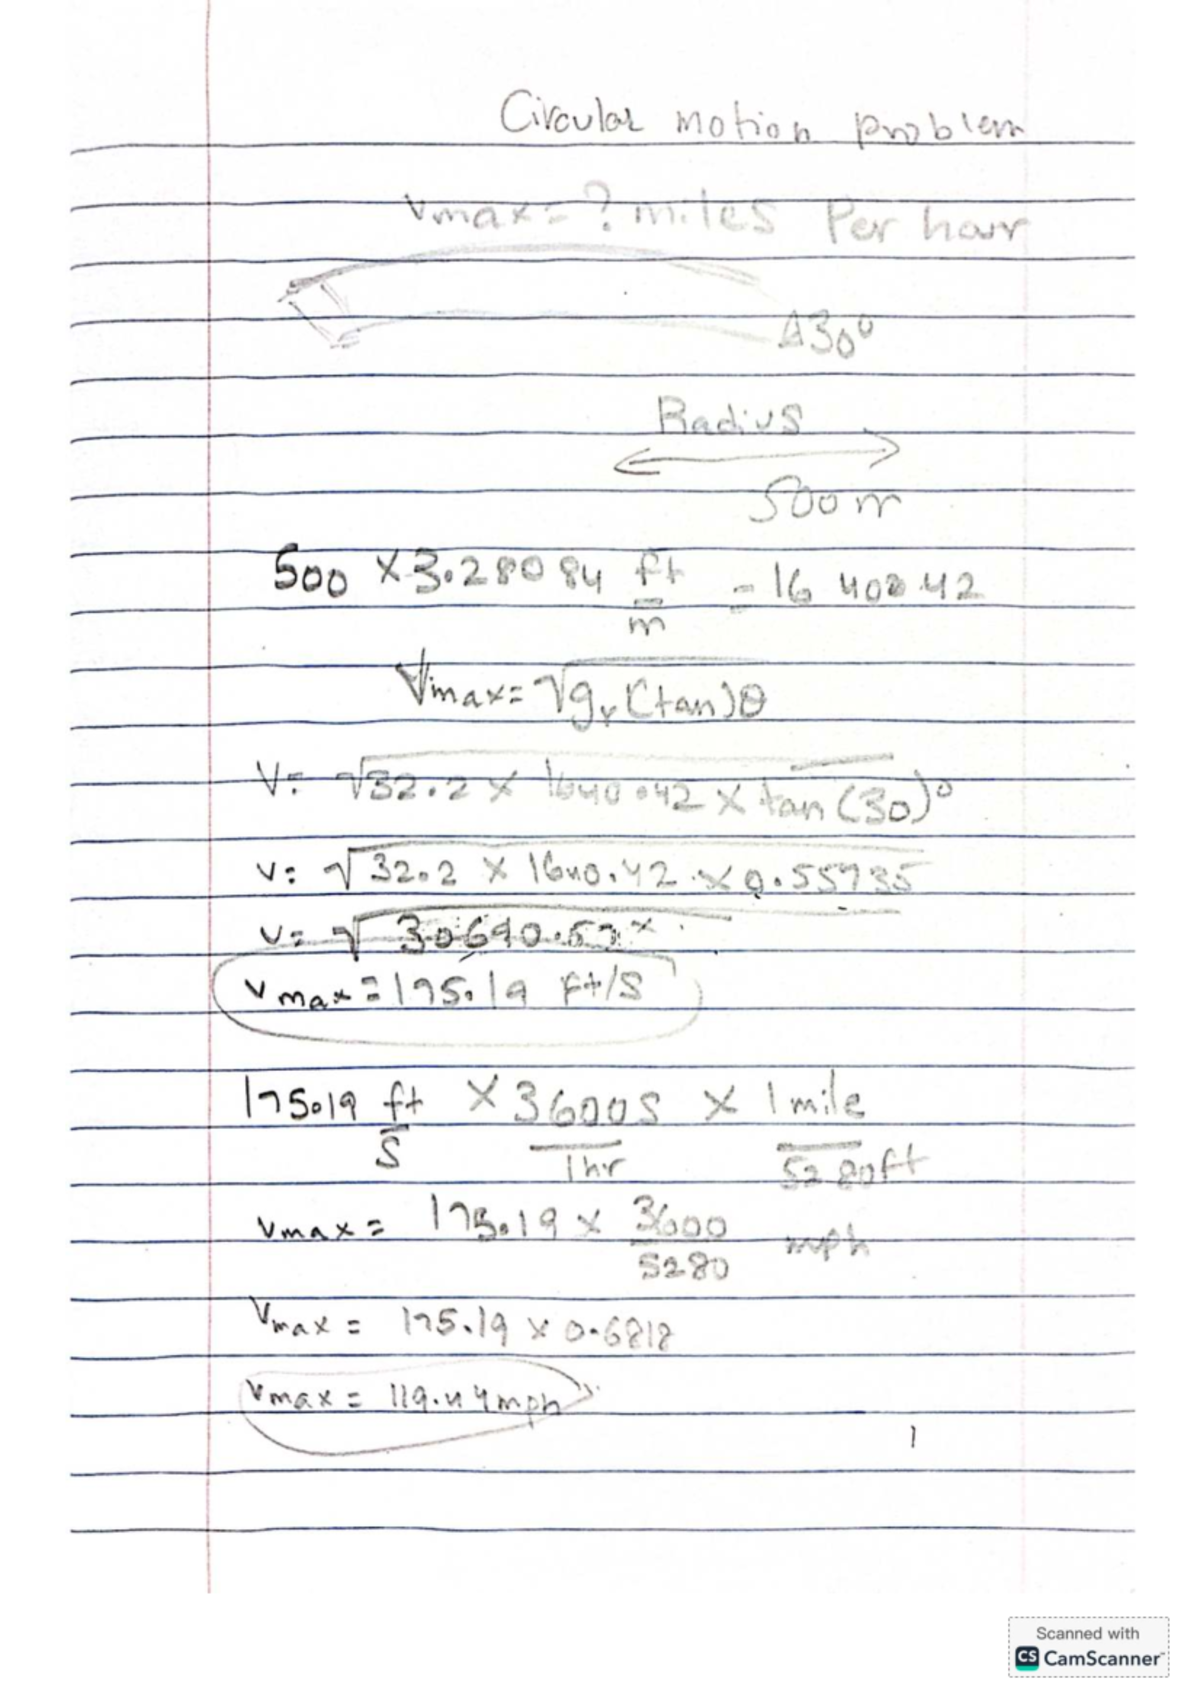 Circular motion problem
vmax = ? miles Per hour
30°
Radius
500m
500 × 3.28084 ft/m = 16 400.42
Vmax = √gr(tan)θ
V= √32.2 × 1640.42 × tan(30)°
v= √32.2 × 1640.42 × 0.55735
v= √30690.57
vmax = 175.19 Ft/S
175.19 ft/S × 3600S/1hr × 1mile/5280ft
vmax = 175.19 × 3600/5280 mph
Vmax = 175.19 × 0.6818
Vmax = 119.44mph
1
Scanned with
CS CamScanner